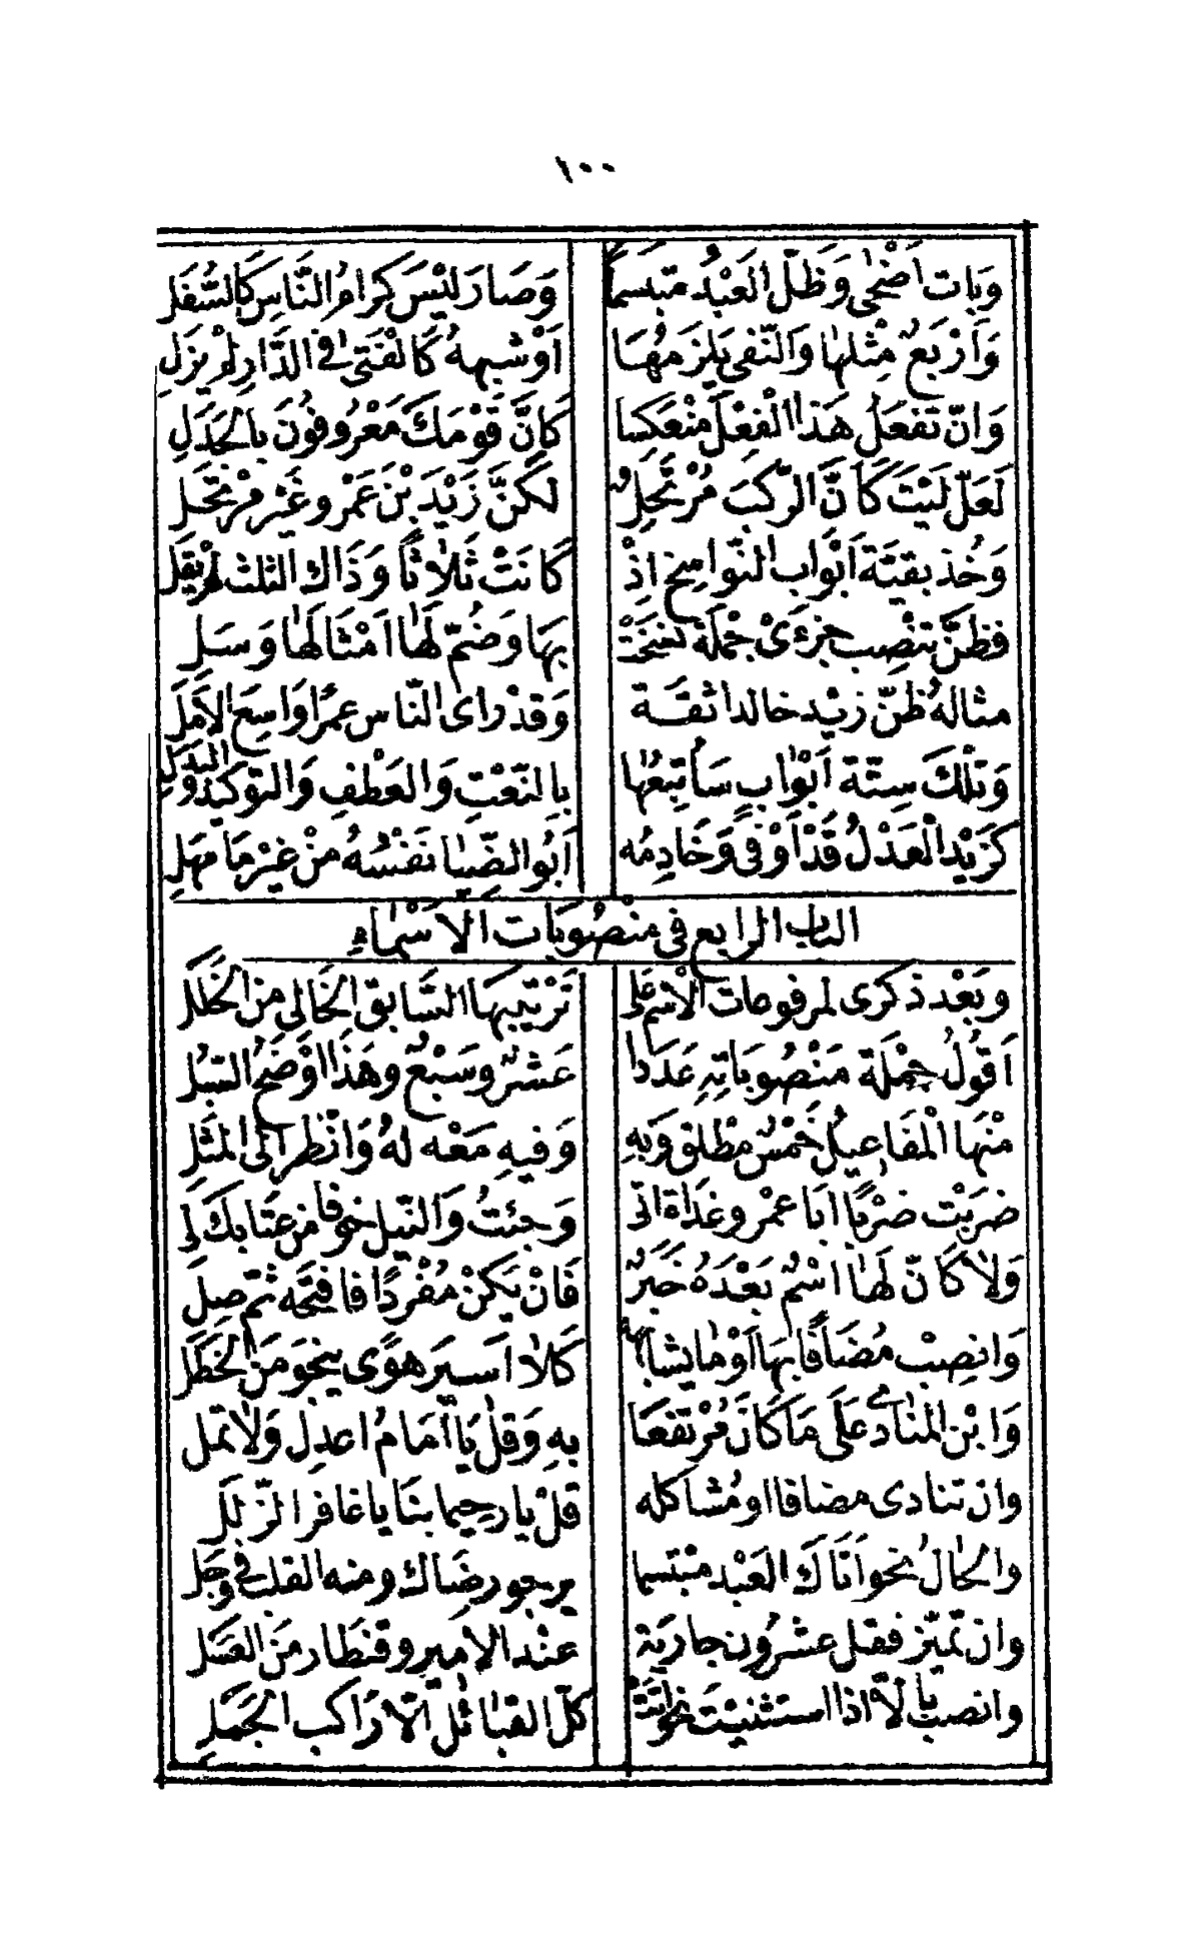 ١٠٠
وَبَات أَضْحٰى وَظَلّ العَبْدُ مبتسماً وَصَارَ لَيْسَ كرامُ النَّاسِ كَالسُّفَلِ
وَأرْبَعٌ مِثْلهَا وَالنّفى يَلْزمُهَا اَوْ شبههُ كَالْفَتىٰ فِى الدَّارِ لَمْ يزلِ
وَانّ تَفعَلُ هَذا الْفِعْلَ مُنْعَكسا كَإِنَّ قَوْمَكَ مَعْرُوفُونَ بِالجَدَلِ
لَعَلّ لَيْتَ كَأَنَّ الرّكْبَ مُرْتَحِلٌ لكنَّ زَيْدَ بْنَ عَمْرٍو غَيْرُ مُرْتَحَلِ
وَخُذ بقيَّة اَبْوَاب النّوَاسِخ اِذْ كَانَتْ ثَلَاثًا وَذَاك الثلث لَمْ يَقُلِ
فظَنَّ تنْصِب جزءىْ جُمْلَة نسَخَتْ بِهَا وَضُمّ لَهَا اَمْثَالَهَا وَسَلِ
مثالهُ ظَنّ زيْد خالدا ثقَة وَقدْ رَاى النّاس عمْرًا وَاسِعَ الاَمَلِ
وَتِلْكَ سِتّة أَبْوَابٍ سَأُتْبِعُهَا بِالنّعْتِ وَالعَطْفِ وَالتّوكيْدِ وَالبدلِ
كَزَيْد الْعَدْلُ قَدْ أَوْفىٰ وَخَادِمُه اَبُو الضّيَا نَفْسُهُ مِنْ غَيْرِ مَا مهَلِ
الباب الرابع فى منْصُوبَات الاَسْمَاءِ
وبَعْد ذكْرَى لمرفوعات الاسْمِ عَلى تَرْتيْبِهَا السَّابِق الخَالِى مِنَ الخَلَلِ
اَقُولُ جُمْلَة مَنْصُوبَاتِهِ عَدَدًا عَشرٌ وَسَبْعٌ وَهَذَا اَوْضَحُ السّبُلِ
مِنْهَا الْمَفَاعِيلُ خَمْسٌ مطْلق وَبهِ وَفيهِ مَعْه لهُ وَانْظر الَى المثَلِ
ضَرَبْت ضرْبًا اَبَا عمْرٍو غدَاة اتى وَجئتُ وَالنّيلَ خوفًا من عتَابكَ لِى
وَلَا كَأنّ لَهَا اسْمٌ بَعْدَهُ خَبَرٌ فَاِنْ يَكنْ مُفْرَدًا فَافتحْه ثمّ صِلِ
وَانصِبْ مُضَافًا بهَا اَوْ مَا يشَابِهُهُ كَلَا اَسيرَ هوًى ينجُو مَنَ الخَطَلِ
وَابْن المنَادى عَلَى مَا كَانَ مُرْتَفعًا بهِ وَقلْ يَا اَمَامُ اعدِل وَلَا تَمِلِ
وان تنادى مضافا او مُشاكله قلْ يا رحيما بنَا يا غافر الزّللِ
والحَالُ نحو اَتَاكَ العَبْد مبْتسما يرجو رضَاك ومنه القلب فى وَجَلِ
وان تميّز فقل عشْرُون جاريَة عنْد الامير وقنطَار مَن العَسَلِ
وانصب بالّا اذا استثنيت نحو اَتَتْ كلّ القبَائل اِلّا رَاكب الجَمَلِ